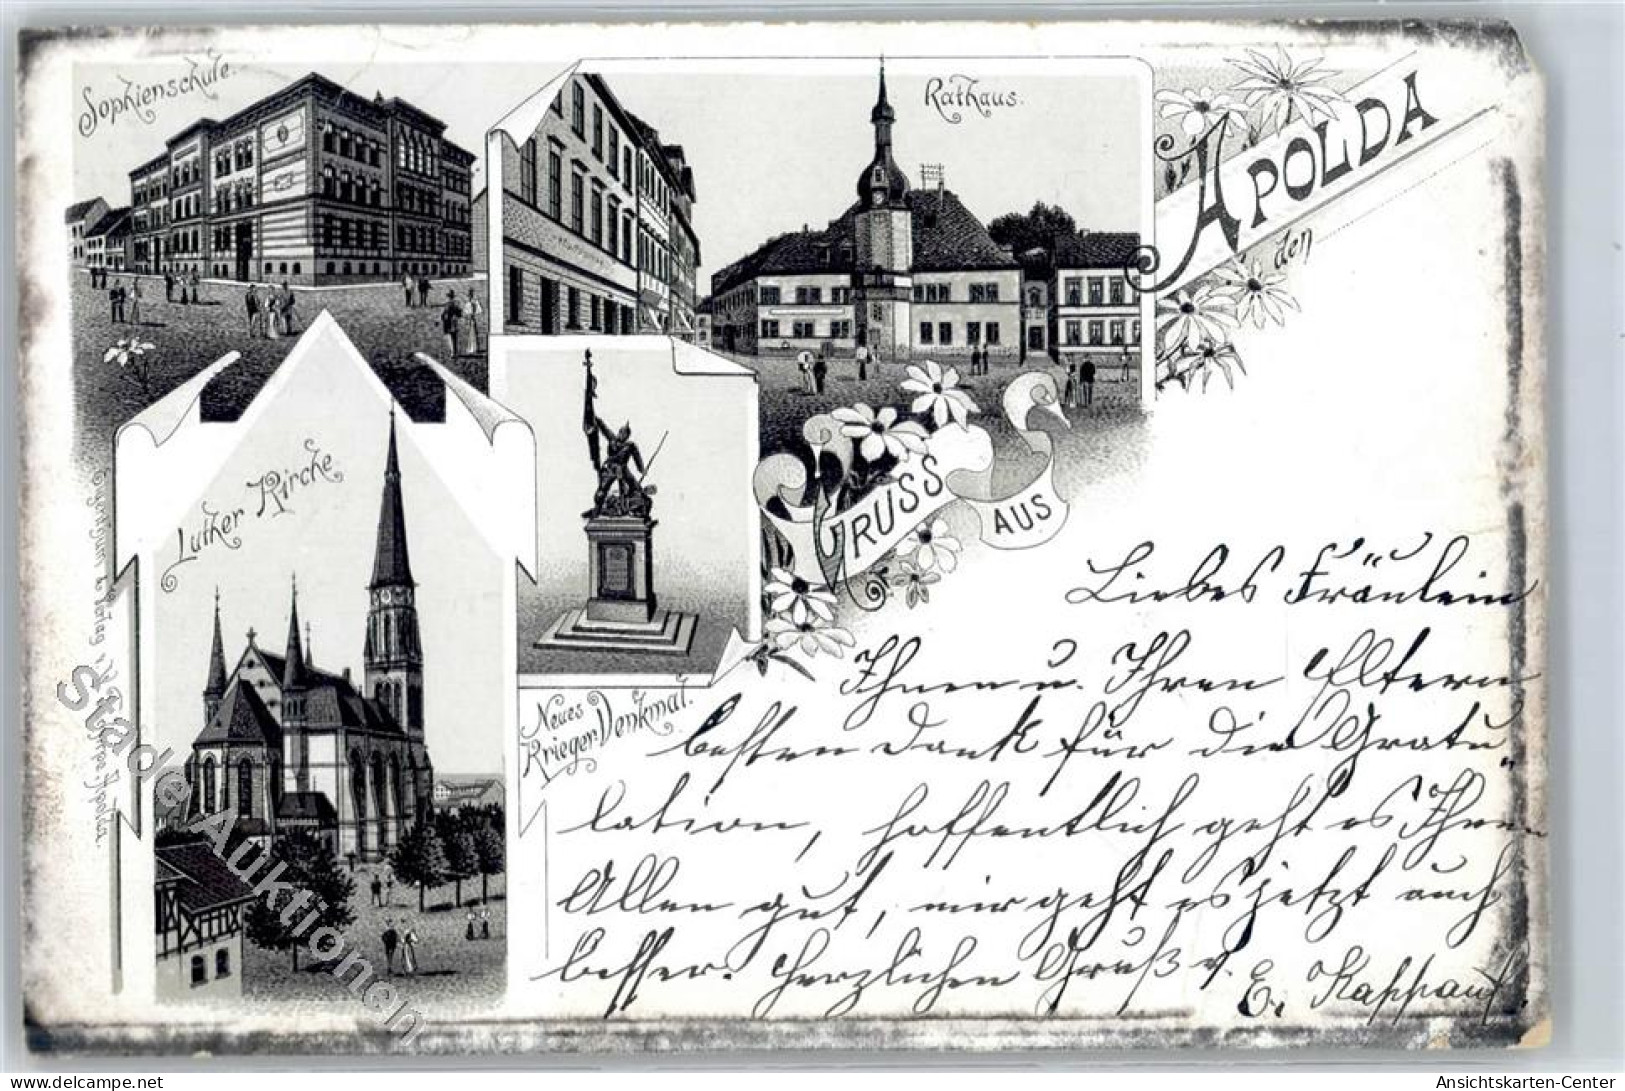 Sophienschule.
Rathaus.
APOLDA
den
GRUSS
AUS
Luther Kirche
Neues
Krieger Denkmal.
Liebes Fräulein
Ihnen u. Ihren Eltern
besten Dank für die Gratu-
lation, hoffentlich geht es Ihnen
Allen gut, mir geht es jetzt auch
besser. Herzlichen Gruß v.
E. Kappauf.
Eigenthum & Verlag v.
Apolda.
Stades Auktionen
www.ansichtskartenversand.com
Ansichtskarten-Center